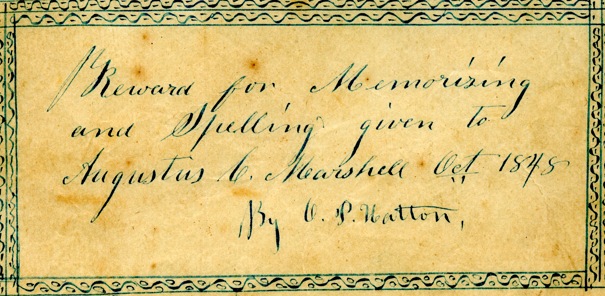 Reward for Memorizing
and Spelling given to
Augustus C. Marshell Oct 1848
By O. P. Hatton,